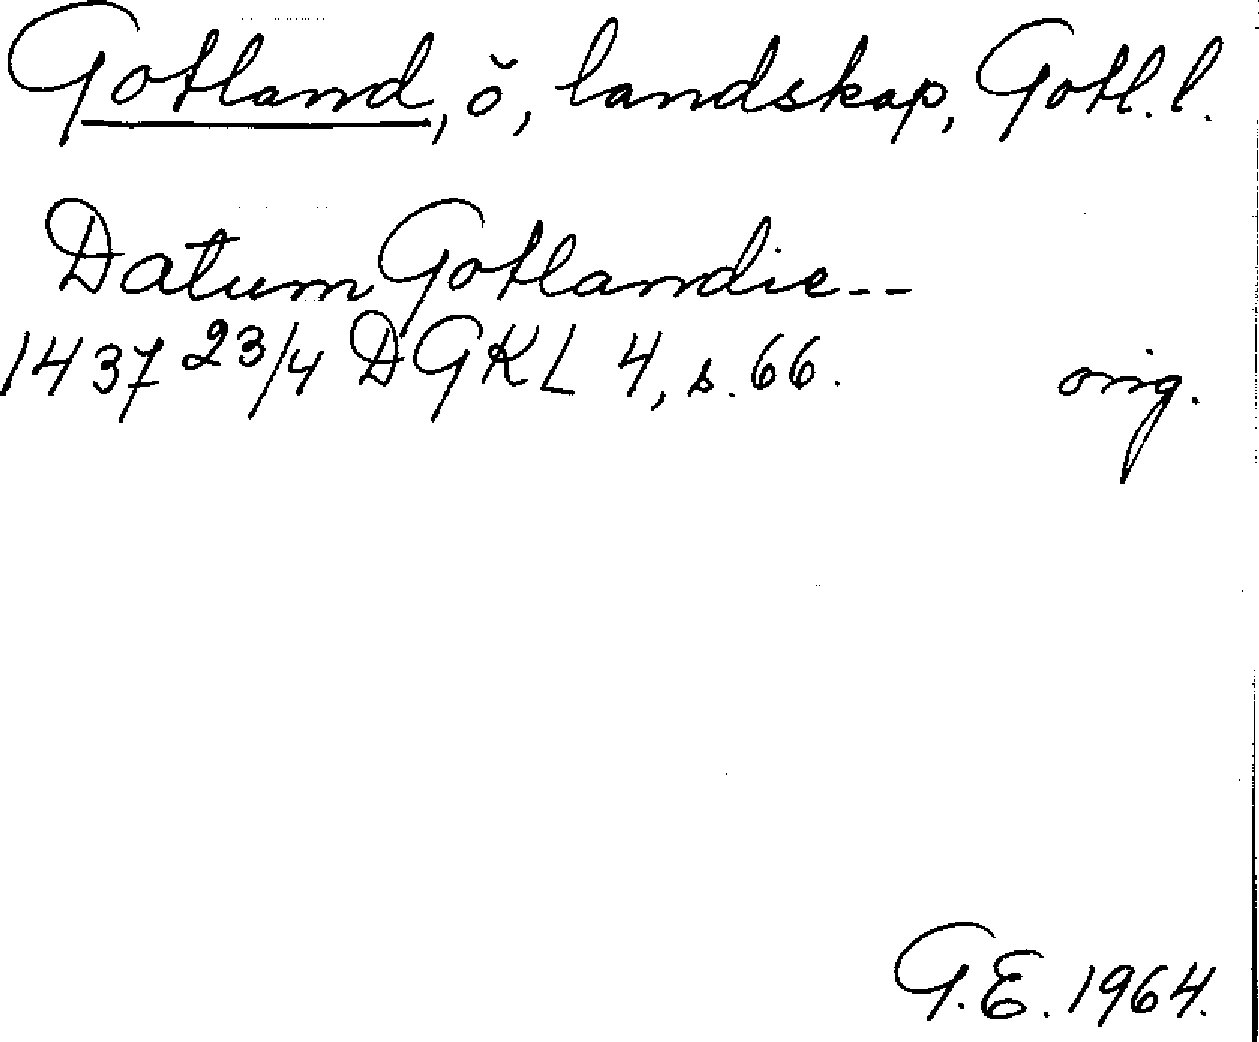 Gotland, ö, landskap, Gotl. l.
Datum Gotlandie--
1437 23/4 DGKL 4, s. 66. orig.
G.E. 1964.